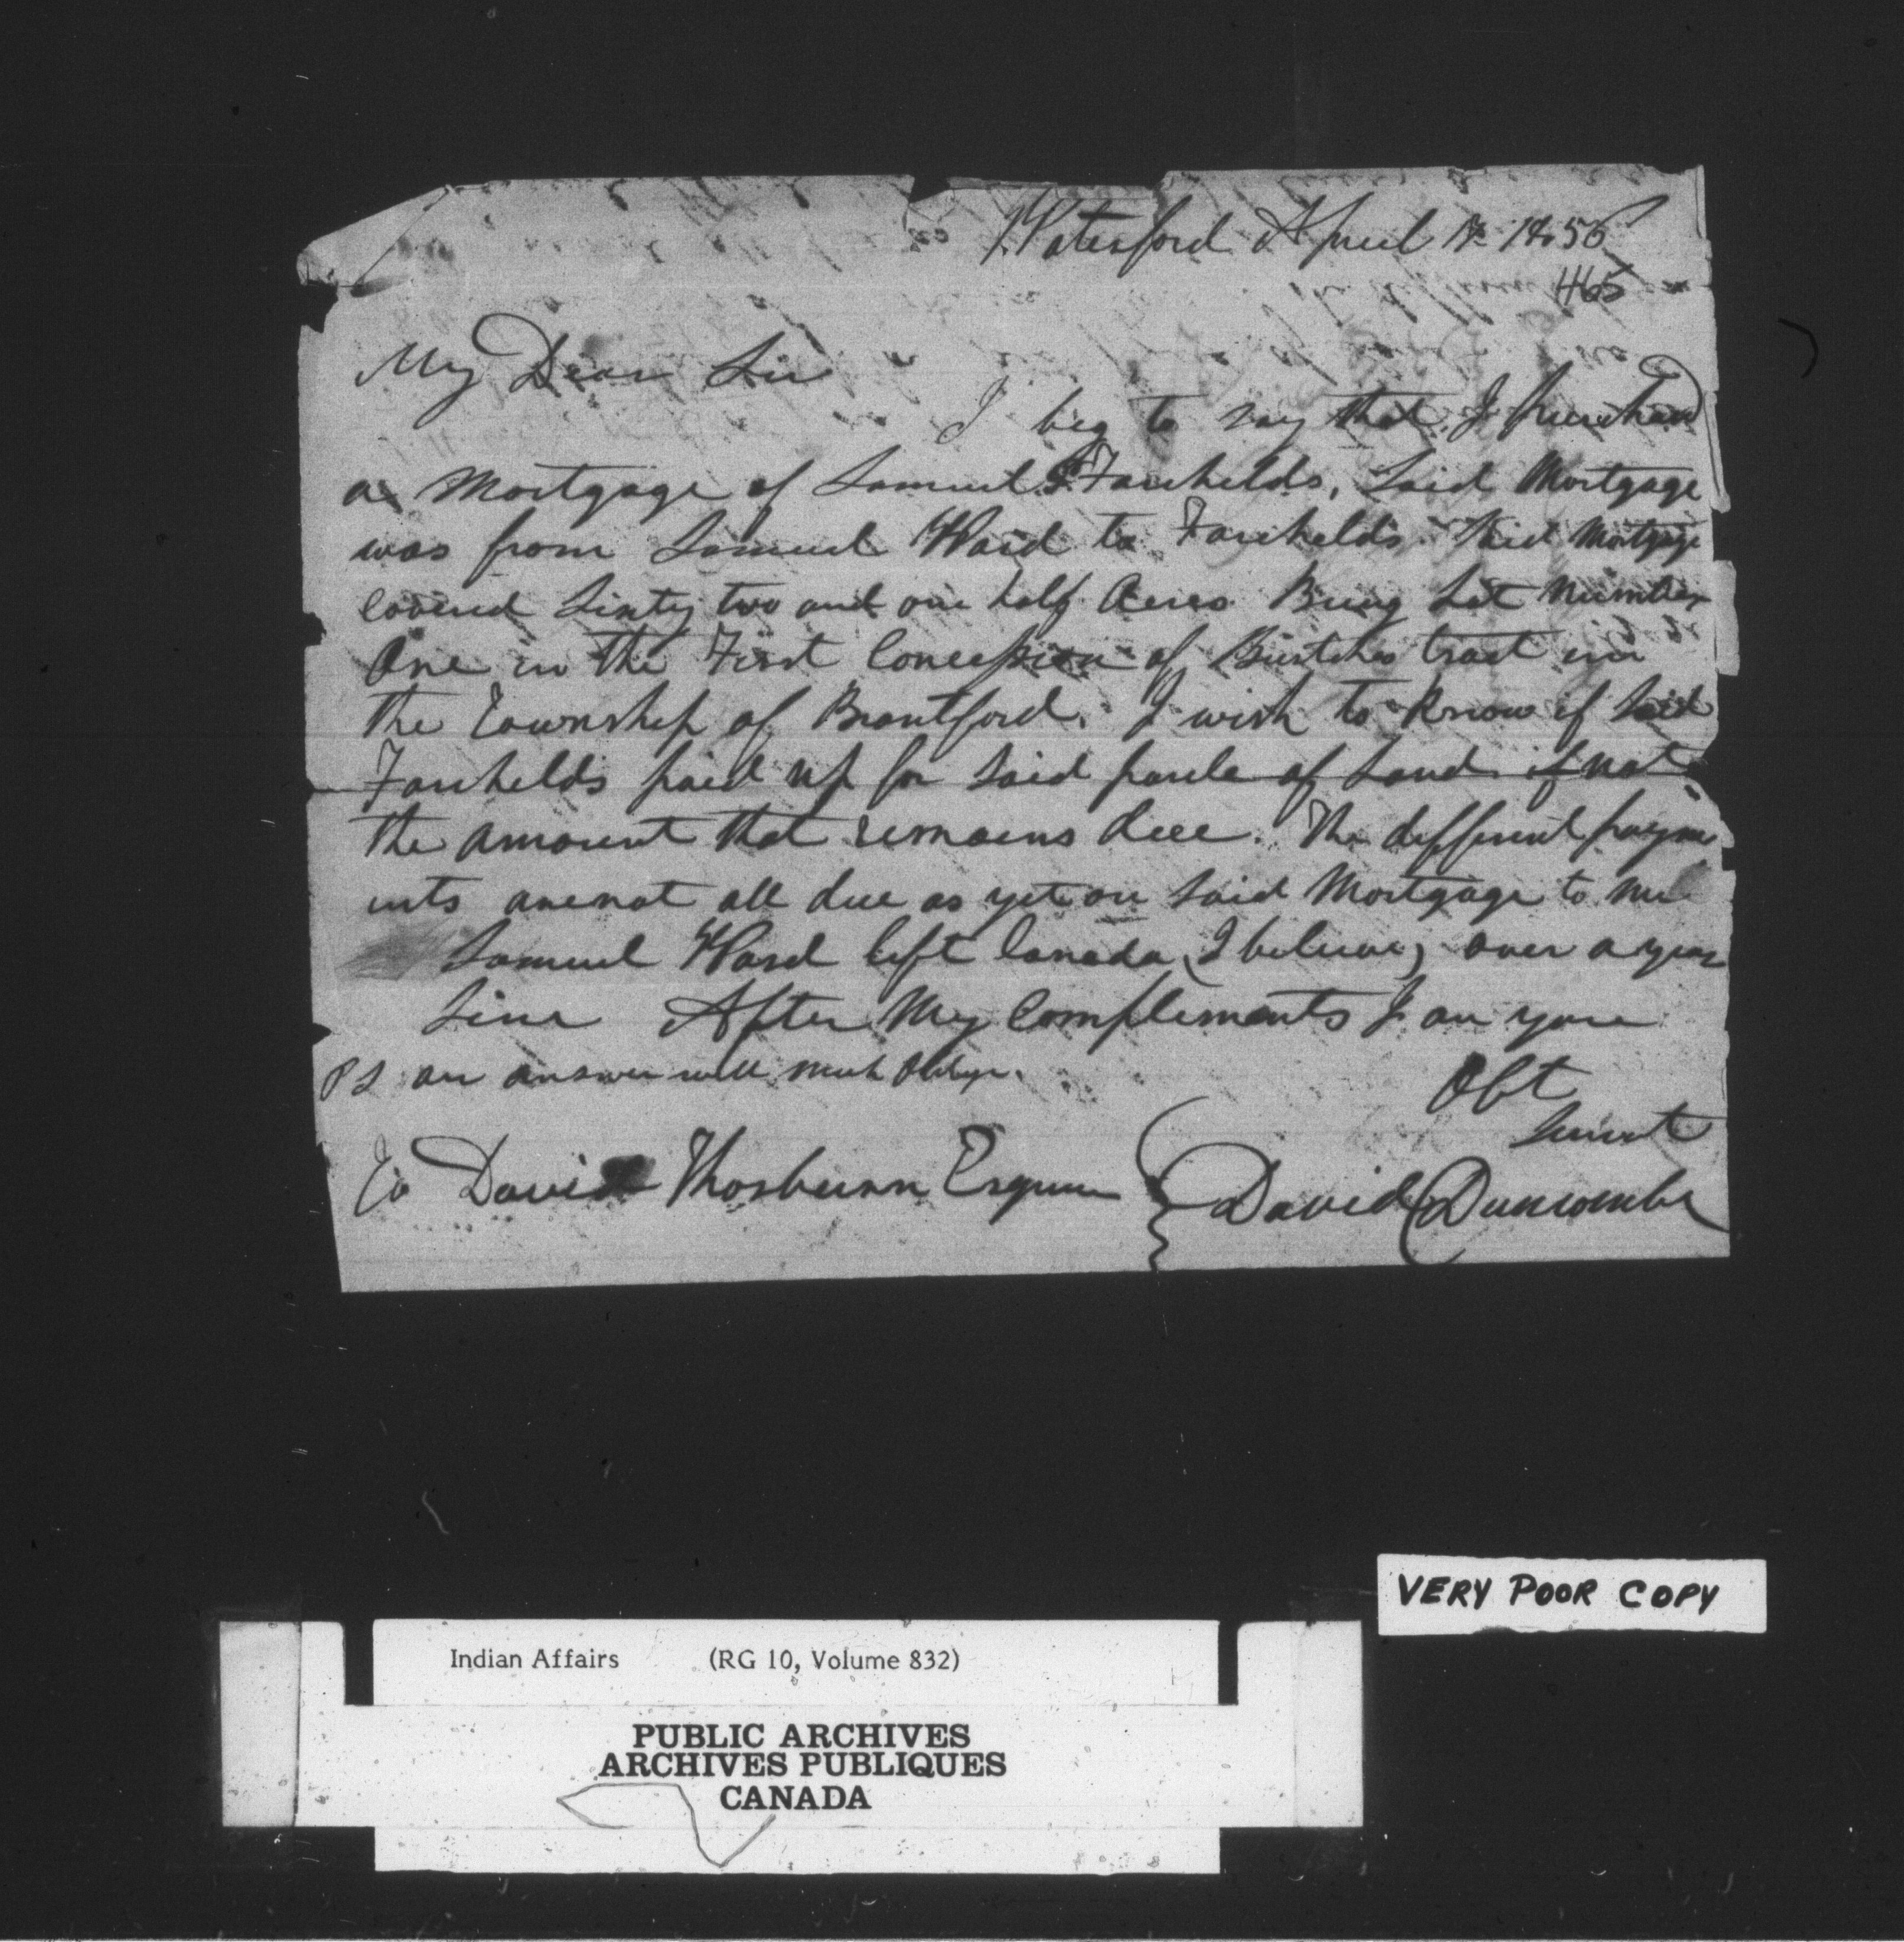 Waterford April 1st 1856
465
My Dear Sir
I beg to say that I purchasd
a Mortgage of Samuel Fairchilds, Said Mortgage
was from Samuel Ward to Fairchilds. Said Mortgage
covered Sixty two and one half Acres Being Lot Number
One in the First Concession of Burtches tract in
the Township of Brantford. I wish to know if Said
Fairchilds paid up for Said parcle of Land if not
the amount that remains due. The different payme
ents are not all due as yet on Said Mortgage to me
Samuel Ward left Canada (I believe) over a year
Since After My Complements I am your
PS an answer will much Oblige.
Obt
Servent
To David Thorburn Esquire
David Duncombe
VERY POOR COPY
Indian Affairs (RG 10, Volume 832)
PUBLIC ARCHIVES
ARCHIVES PUBLIQUES
CANADA